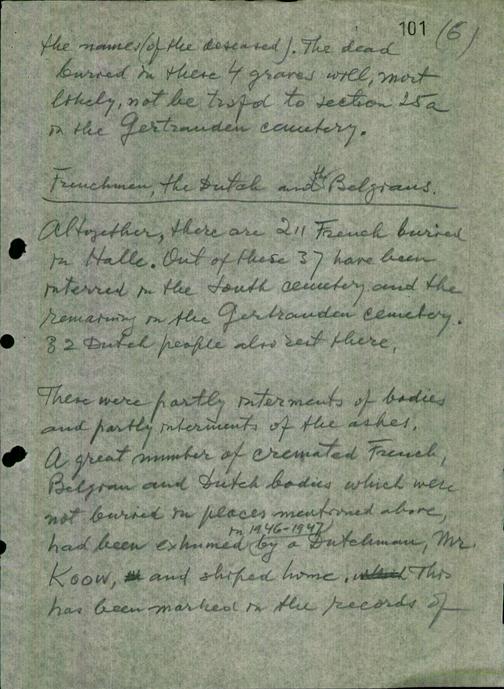 101 (6)
the names (of the deseased). The dead
buried in these 4 graves will, most
likely, not be trafd to section 25a
in the Gertrauden cemetery.
Frenchmen, the Dutch and the Belgians.
Altogether, there are 211 French buried
in Halle. Out of these 37 have been
interred in the South cemetery and the
remaining in the Gertrauden cemetery.
32 Dutch people also rest there.
These were partly interments of bodies
and partly interments of the ashes.
A great number of cremated French,
Belgian and Dutch bodies which were
not buried in places mentioned above,
in 1946-1947
had been exhumed by a Dutchman, Mr.
Koow, and shiped home. This
has been marked in the records of